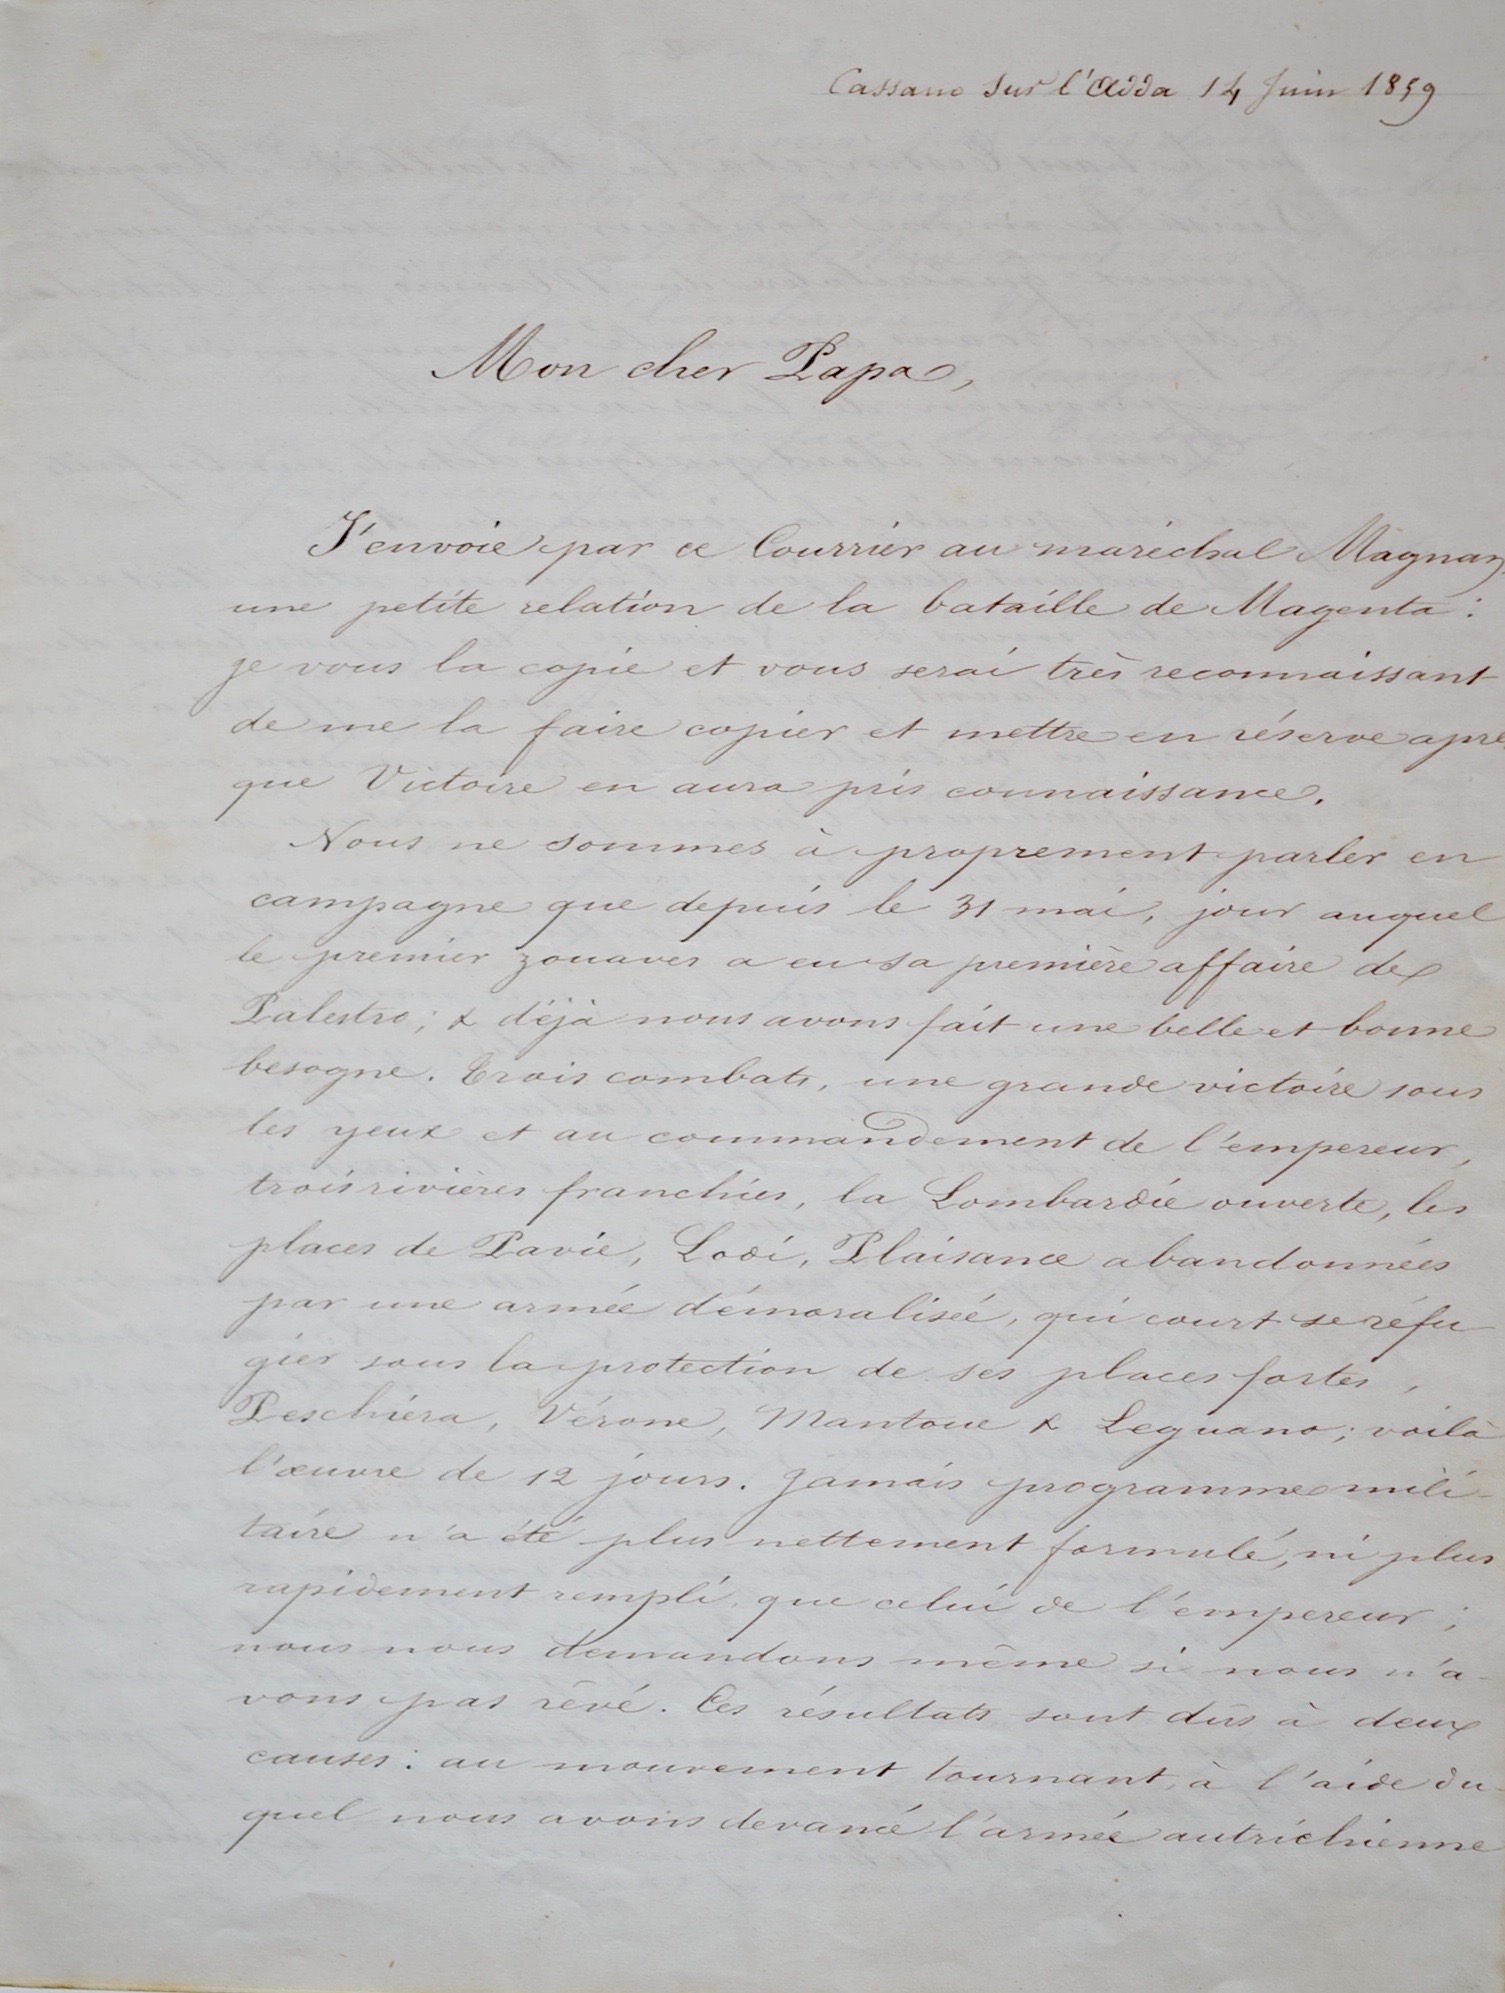 Cassano sur l'Adda 14 Juin 1859
Mon cher Papa,
J'envoie par ce Courrier au maréchal Magnan
une petite relation de la bataille de Magenta :
je vous la copie et vous serai très reconnaissant
de me la faire copier et mettre en réserve apre
que Victoire en aura pris connaissance.
Nous ne sommes à proprement parler en
campagne que depuis le 31 mai, jour auquel
le premier zouaves a eu sa première affaire de
Palestro ; & déjà nous avons fait une belle et bonne
besogne. Trois combats, une grande victoire sous
les yeux et au commandement de l'empereur,
trois rivières franchies, la Lombardie ouverte, les
places de Pavie, Lodi, Plaisance abandonnées
par une armée démoralisée, qui court se réfu
gier sous la protection de ses places fortes,
Peschiéra, Vérone, Mantoue & Leguano ; voilà
l'œuvre de 12 jours. Jamais programme mili-
taire n'a été plus nettement formulé, ni plus
rapidement rempli, que celui de l'empereur ;
nous nous demandons même si nous n'a-
vons pas rêvé. Ces résultats sont dûs à deux
causes : au mouvement tournant, à l'aide du-
quel nous avons devancé l'armée autrichienne